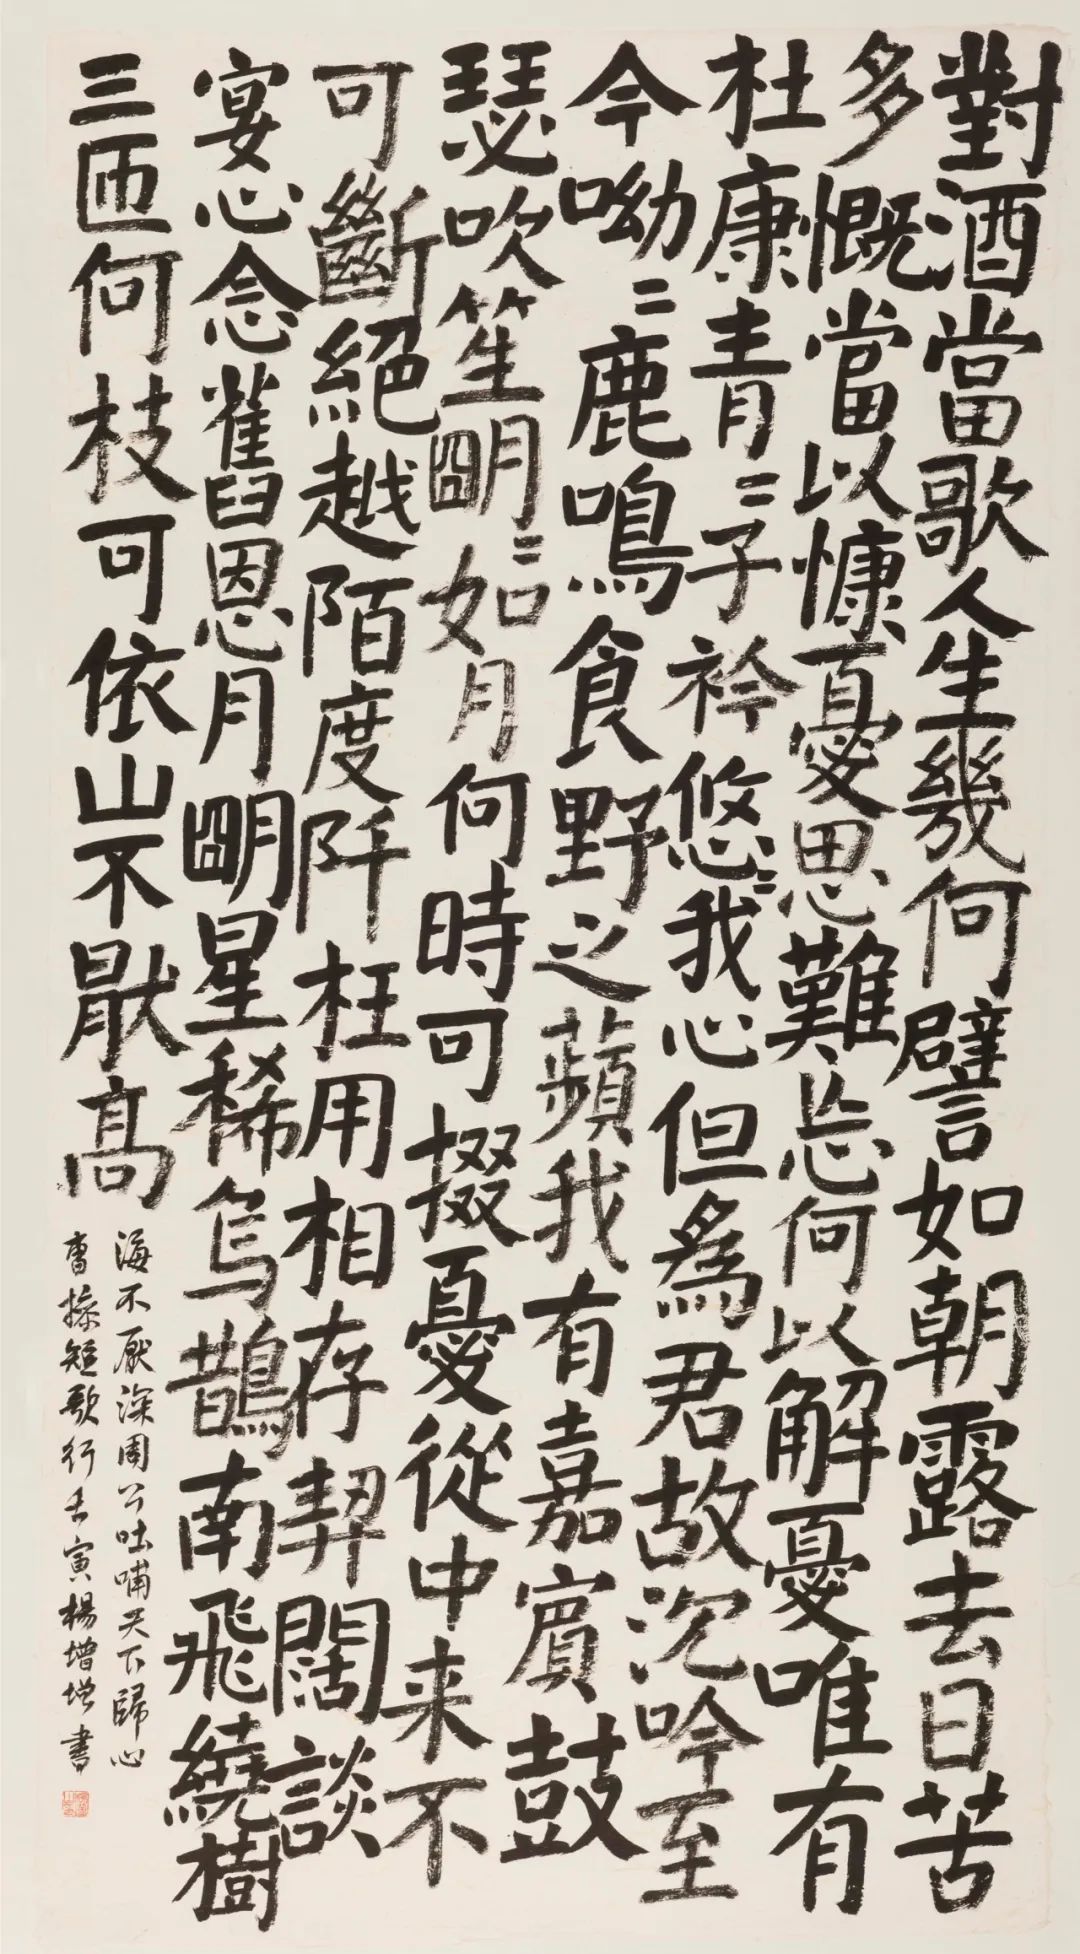 對酒當歌人生幾何譬如朝露去日苦
多慨當以慷憂思難忘何以解憂唯有
杜康青〻子衿悠〻我心但為君故沉吟至
今呦〻鹿鳴食野之蘋我有嘉賓鼓
瑟吹笙朙〻如月何時可掇憂從中来不
可斷絕越陌度阡枉用相存契闊談
宴心念舊恩月朙星稀烏鵲南飛繞樹
三匝何枝可依山不猒高
海不厭深周公吐哺天下歸心
曹操短歌行壬寅楊增增書